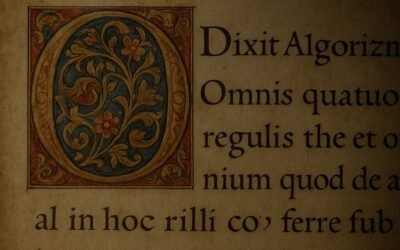 O
Dixit Algorizm
Omnis quatuo
regulis the et o
nium quod de a
al in hoc rilli co⁹ ferre fub